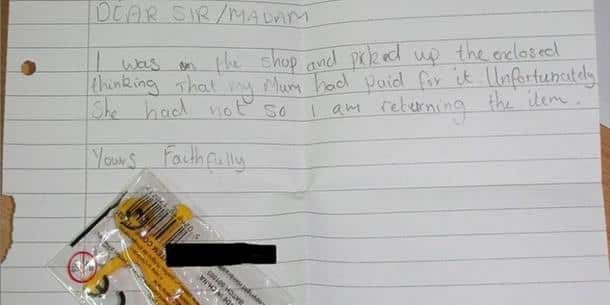 DEAR SIR/MADAM
I was in the shop and picked up the enclosed
thinking that my Mum had paid for it Unfortunately
She had not so I am returning the item.
Yours Faithfully